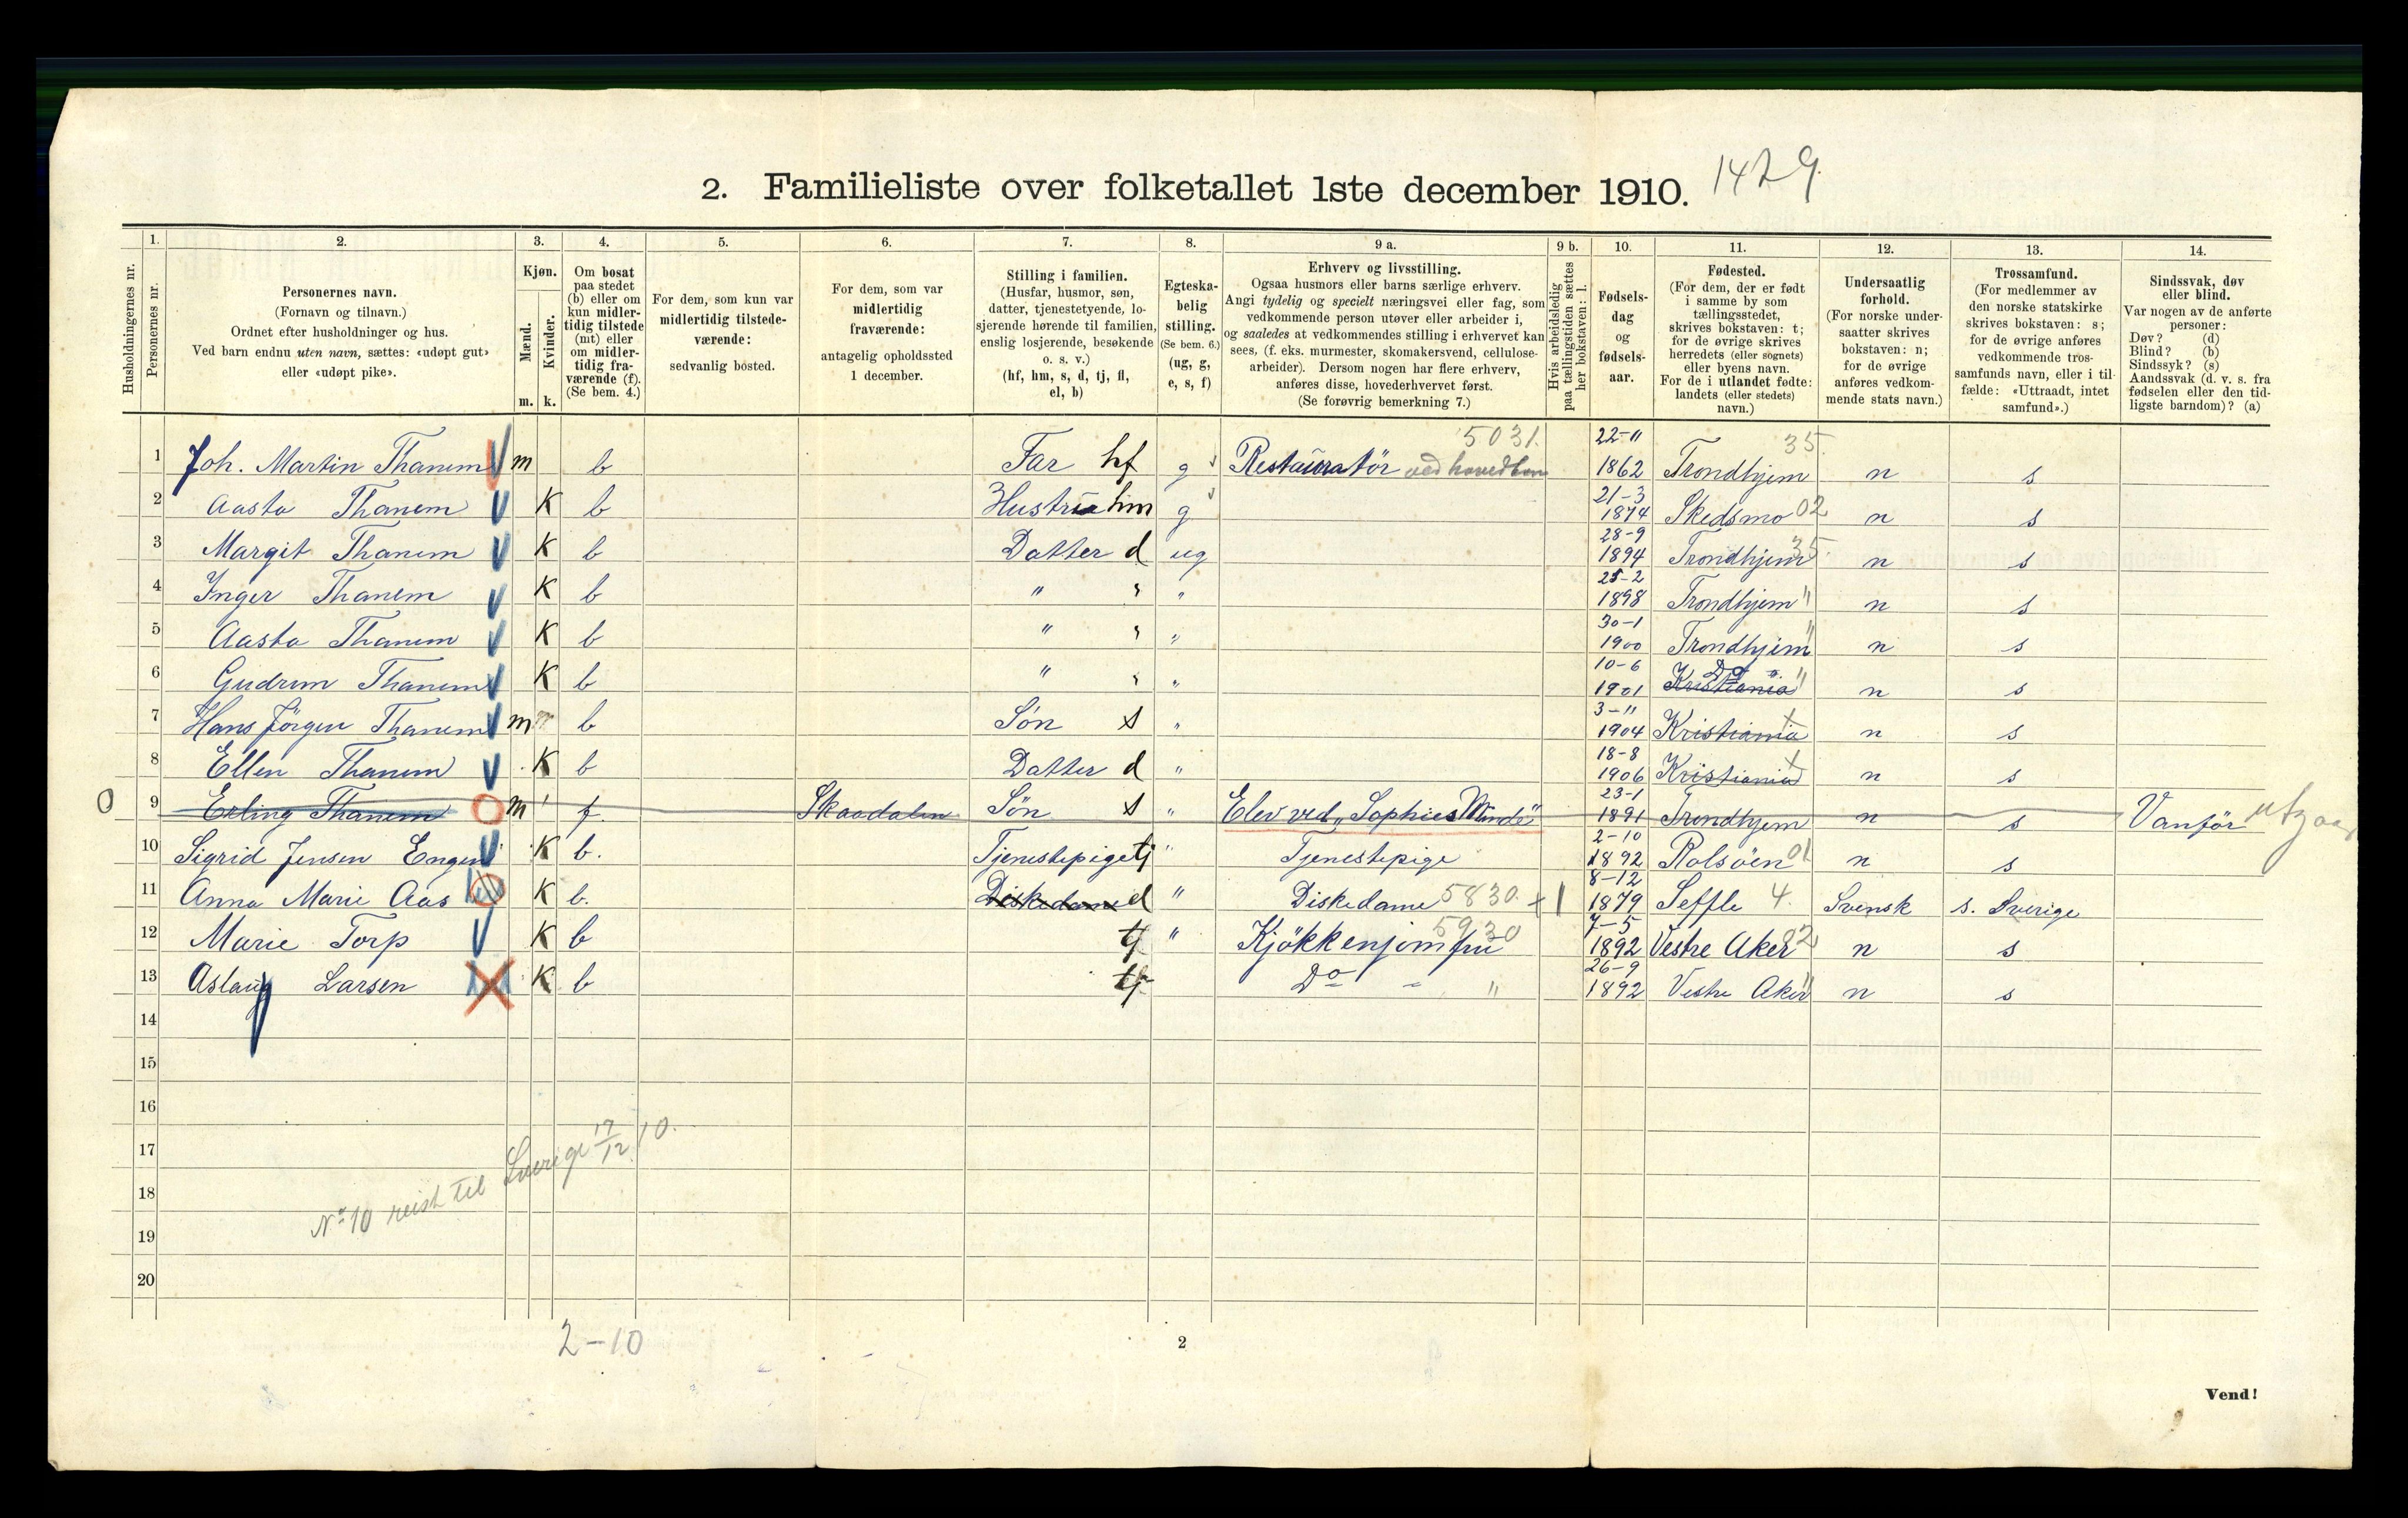 2. Familieliste over folketallet 1ste december 1910. 1429
Husholdningernes nr.
1. Personernes nr.
2. Personernes navn.
(Fornavn og tilnavn.)
Ordnet efter husholdninger og hus.
Ved barn endnu uten navn, sættes: «udøpt gut»
eller «udøpt pike».
3. Kjøn.
Mænd. m.
Kvinder. k.
4. Om bosat
paa stedet
(b) eller om
kun midler-
tidig tilstede
(mt) eller
om midler-
tidig fra-
værende (f).
(Se bem. 4.)
5. For dem, som kun var
midlertidig tilstede-
værende:
sedvanlig bosted.
6. For dem, som var
midlertidig
fraværende:
antagelig opholdssted
1 december.
7. Stilling i familien.
(Husfar, husmor, søn,
datter, tjenestetyende, lo-
sjerende hørende til familien,
enslig losjerende, besøkende
o. s. v.)
(hf, hm, s, d, tj, fl,
el, b)
8. Egteska-
belig
stilling.
(Se bem. 6.)
(ug, g,
e, s, f)
9 a. Erhverv og livsstilling.
Ogsaa husmors eller barns særlige erhverv.
Angi tydelig og specielt næringsvei eller fag, som
vedkommende person utøver eller arbeider i,
og saaledes at vedkommendes stilling i erhvervet kan
sees, (f. eks. murmester, skomakersvend, cellulose-
arbeider). Dersom nogen har flere erhverv,
anføres disse, hovederhvervet først.
(Se forøvrig bemerkning 7.)
9 b. Hvis arbeidsledig
paa tællingstiden sættes
her bokstaven: l.
10. Fødsels-
dag
og
fødsels-
aar.
11. Fødested.
(For dem, der er født
i samme by som
tællingsstedet,
skrives bokstaven: t;
for de øvrige skrives
herredets (eller sognets)
eller byens navn.
For de i utlandet fødte:
landets (eller stedets)
navn.)
12. Undersaatlig
forhold.
(For norske under-
saatter skrives
bokstaven: n;
for de øvrige
anføres vedkom-
mende stats navn.)
13. Trossamfund.
(For medlemmer av
den norske statskirke
skrives bokstaven: s;
for de øvrige anføres
vedkommende tros-
samfunds navn, eller i til-
fælde: «Uttraadt, intet
samfund».)
14. Sindssvak, døv
eller blind.
Var nogen av de anførte
personer:
Døv? (d)
Blind? (b)
Sindssyk? (s)
Aandssvak (d. v. s. fra
fødselen eller den tid-
ligste barndom)? (a)
1 Joh. Martin Thanem m b Far hf g Restauratør ved hovedban 5031. 22-11 1862 Trondhjem 35. n s
2 Aasta Thanem K b Hustru hm g 21-3 1874 Skedsmo 02 n s
3 Margit Thanem K b Datter d ug 28-9 1894 Trondhjem 35. n s
4 Inger Thanem K b " " " 25-2 1898 Trondhjem " n s
5 Aasta Thanem K b " " " 30-1 1900 Trondhjem " n s
6 Gudrun Thanem K b " " " 10-6 1901 Kristiania Do " n s
7 Hans Jörgen Thanem m b Søn s " 3-11 1904 Kristiania t n s
8 Ellen Thanem K b Datter d " 18-8 1906 Kristiania t n s
0 9 Erling Thanem m f. Skaadalen Søn s " Elev ved "Sophies Minde" 23-1 1891 Trondhjem n s Vanför utgaar
10 Sigrid Jensen Engen K b. Tjenestepige tj " Tjenestepige 2-10 1892 Rolsöen 01 n s
11 Anna Marie Aas K b. Diskedame el " Diskedame 5830. 8-12 1879 Seffle 4. Svensk s. Sverige
12 Marie Torp K b tj " Kjökkenjomfru 5930 7-5 1892 Vestre Aker 02 n s
13 Aslaug Larsen K b tj Do " 26-9 1892 Vestre Aker " n s
14
15
16
17
18
19
20
No 10 reist til Sverige 17/12 10.
2-10
2
Vend!